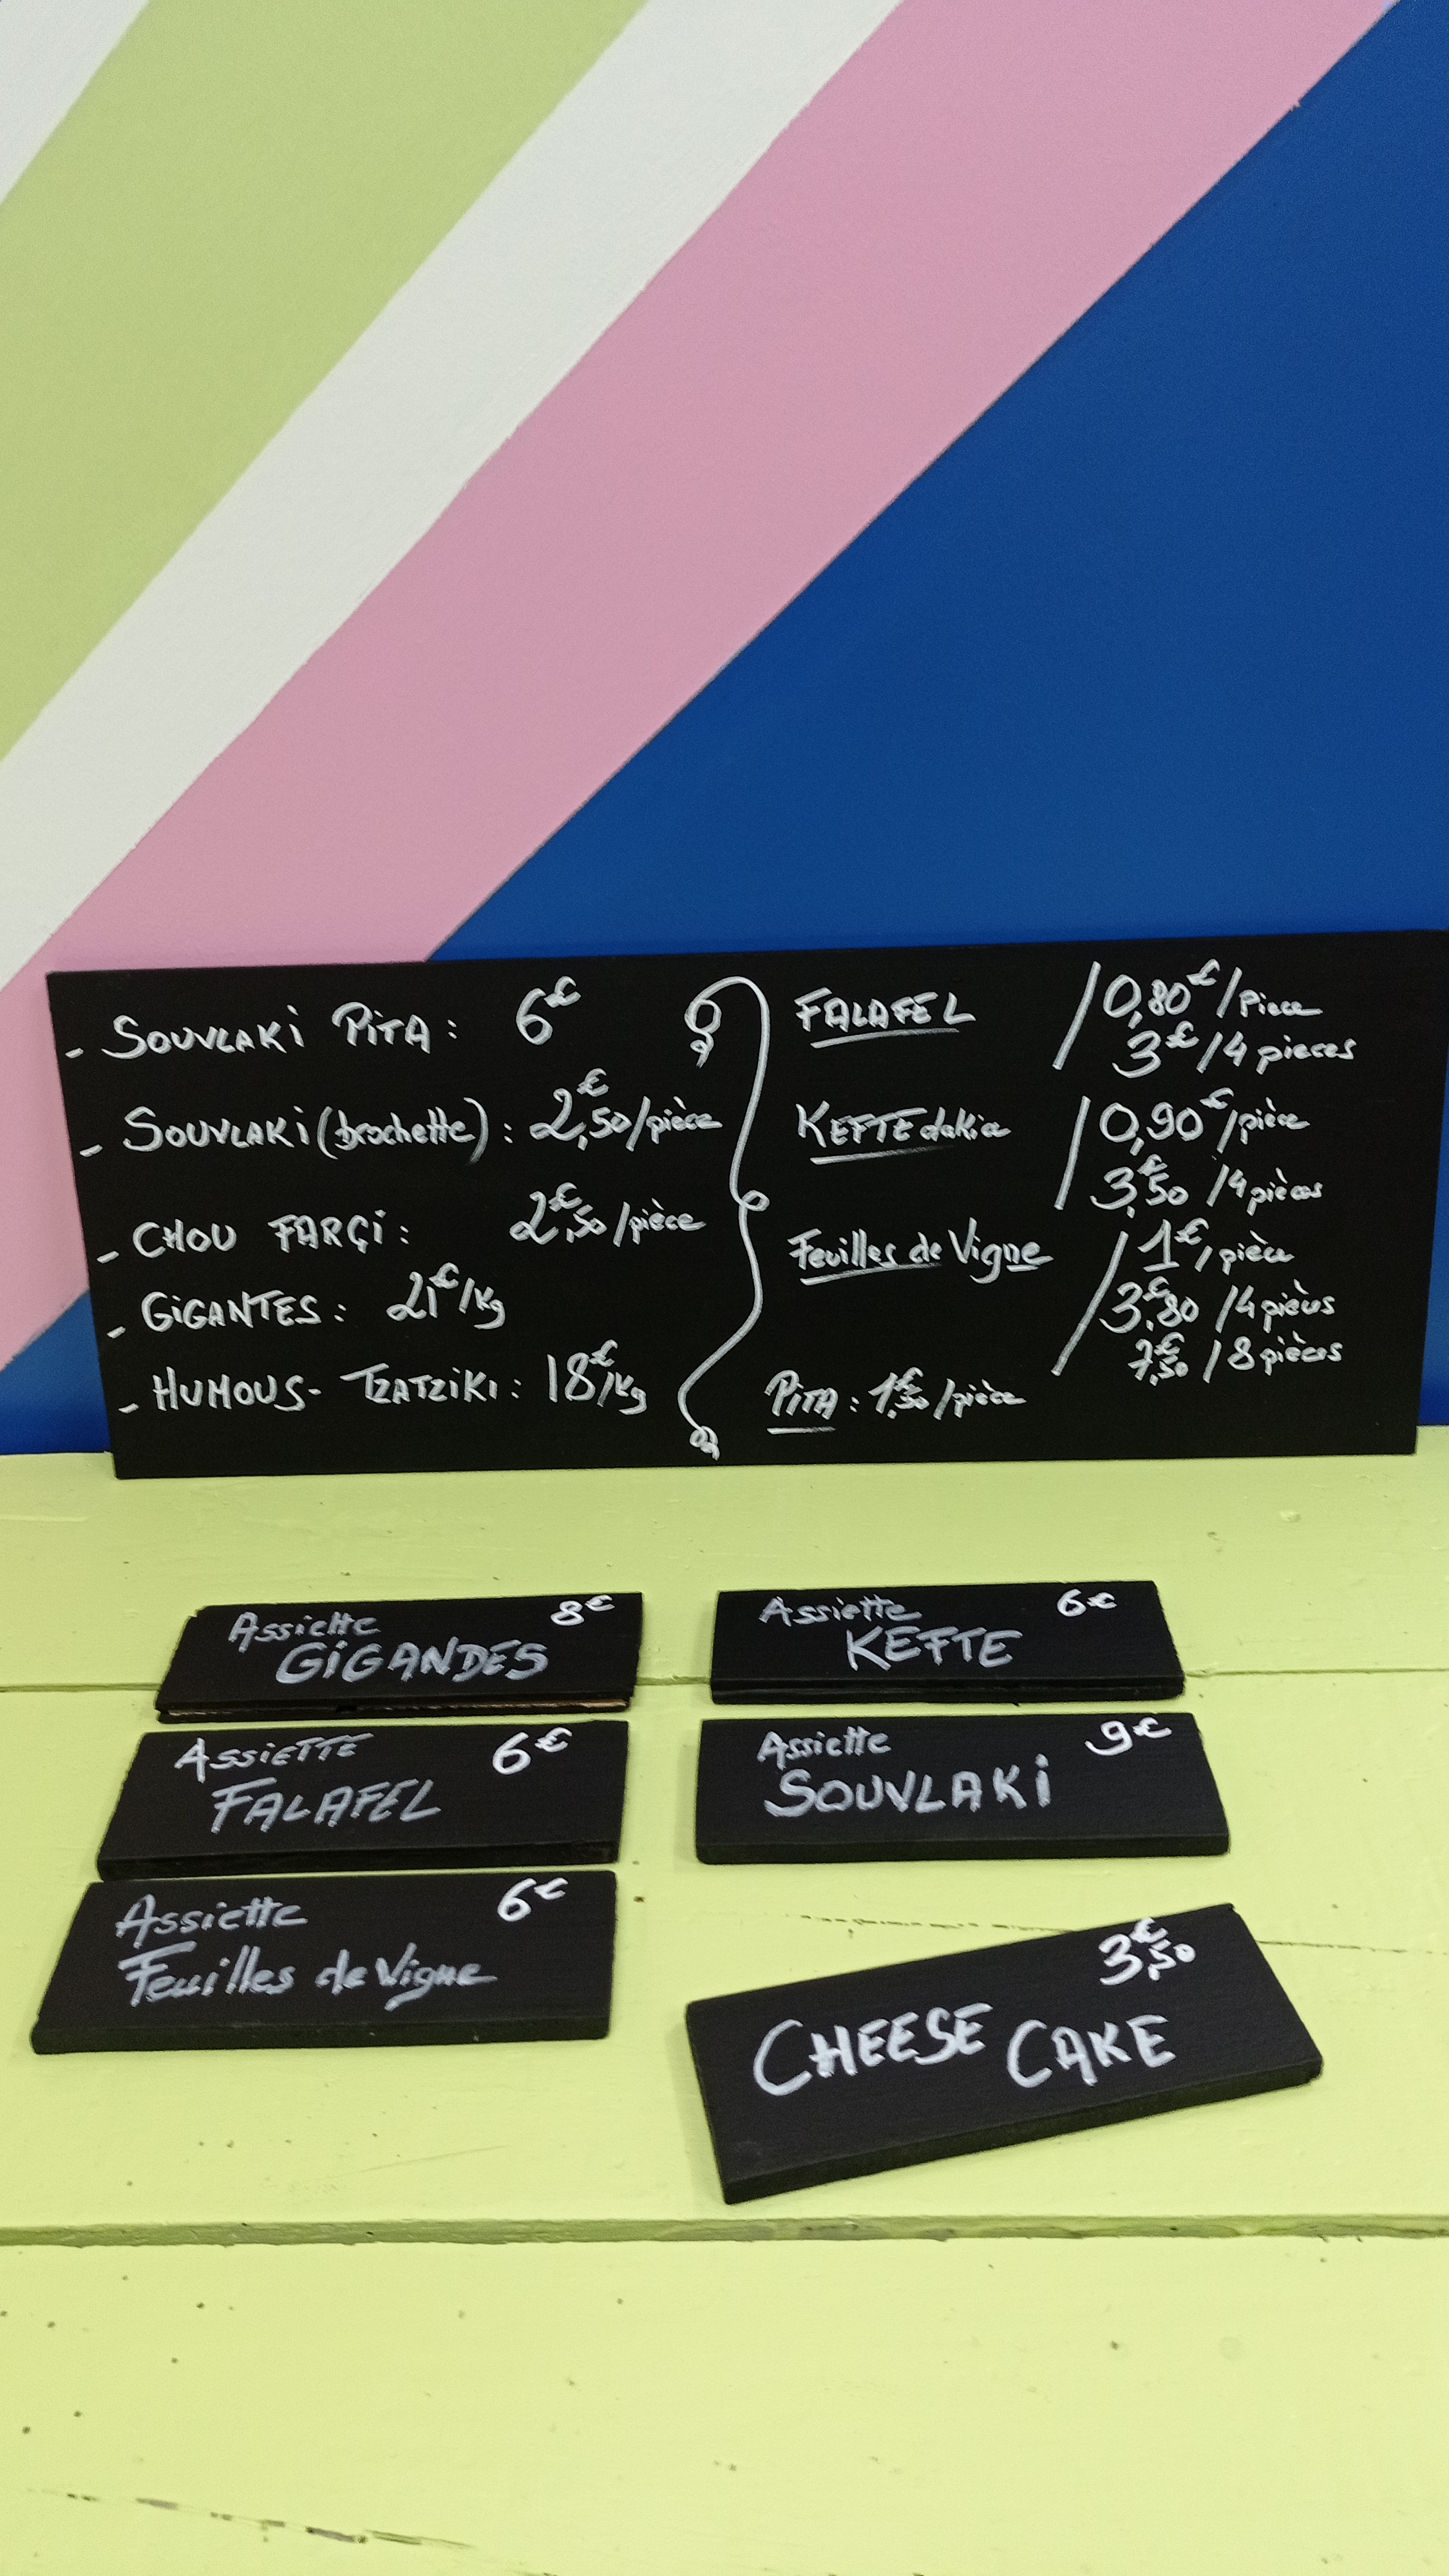 - SOUVLAKi PiTA : 6€
- SOUVLAKi (brochette) : 2,50€/pièce
- CHOU FARÇi : 2,50€/pièce
- GiGANTES : 21€/Kg
- HUMOUS - TZATZiKi : 18€/Kg
FALAFEL / 0,80€/Piece
3€/4 pieces
KEFTEdakia / 0,90€/pièce
3,50€/4 pièces
Feuilles de Vigne / 1€/pièce
3,80€/4 pièces
7,50€/8 pièces
PiTA : 1,50€/pièce
Assiette 8€
GiGANDES
Assiette 6€
KEFTE
ASSiETTE 6€
FALAFEL
Assiette 9€
SOUVLAKi
Assiette 6€
Feuilles de Vigne
3,50€
CHEESE CAKE